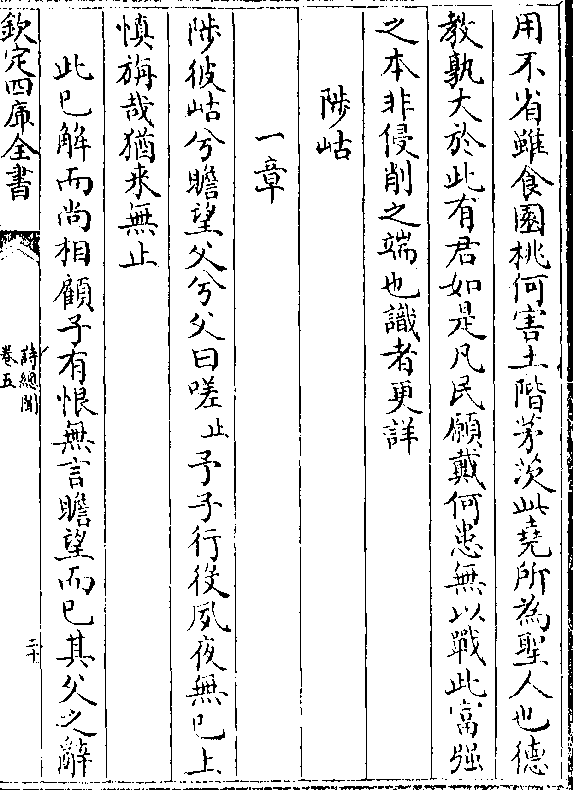 用不省雖食園桃何害土階茅茨此堯所為聖人也德
教孰大於此有君如是凡民願戴何患無以戰此富强
之本非侵削之端也識者更詳
陟岵
一章
陟彼岵兮瞻望父兮父曰嗟止予子行役夙夜無已上
慎旃哉猶来無止
此已解而尚相顧子有恨無言瞻望而已其父之辭
欽定四庫全書
詩總聞
卷五
二十